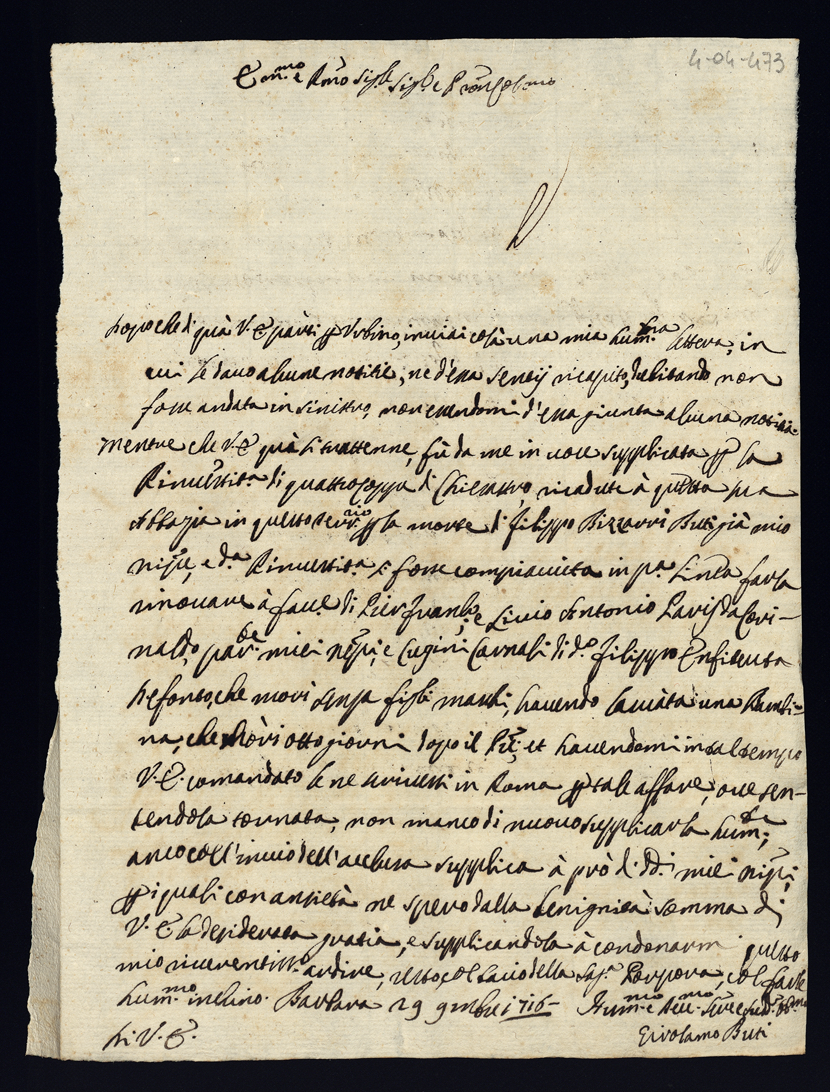 4-04-473
Em.mo e Rmo Sig.re Sig.re e Pron Col.mo
Dopo che di quà V. E. partì p Urbino, inviai colà una mia hum.ma lettera, in
cui le davo alcune notitie, ne d'essa sentij ricapito, dubitando non
fosse andata in sinistro, non essendomi d'essa giunta alcuna notitia.
Mentre che V. E. quà si trattenne, fù da me in voce supplicata p la
Rinvestita di quattro coppe di Chiesastro, ricadute à questa sua
Abbazia in questo terr.rio p la morte di Filippo Bizzarri Buti già mio
nipe, e d.a Rinvestita si fosse compiaciuta in p.a linea farla
rinovare à fau.e di Pier Fran.co, e Livio Antonio Paris da Cori-
naldo, par.te miei nepi, e Cugini Carnali di d.o Filippo Enfiteuta
defonto, che morì senza figli maschi, havendo lasciata una Bambi-
na, che morì otto giorni dopo il Pre, et havendomi in tal tempo
V. E. comandato le ne scrivessi in Roma p tale affare, ove sen-
tendola tornata, non manco di nuovo supplicarla hum.te,
anco coll'invio dell'acclusa supplica à prò di dd.i miei nipi,
p i quali con ansietà ne spero dalla benignità somma di
V. E. la desiderata gratia, e supplicandola à condonarmi questo
mio riverentiss.o ardire, resto col bacio della Sag.a Porpora, col farle
hum.mo inchino. Barbara 29 9mbre 1716
Di V. E.
Hum.mo e Dev.mo Serv.e
Girolamo Buti